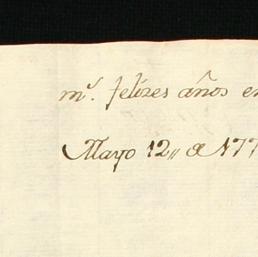 m.ˢ felizes años en
Mayo 12,, a 177